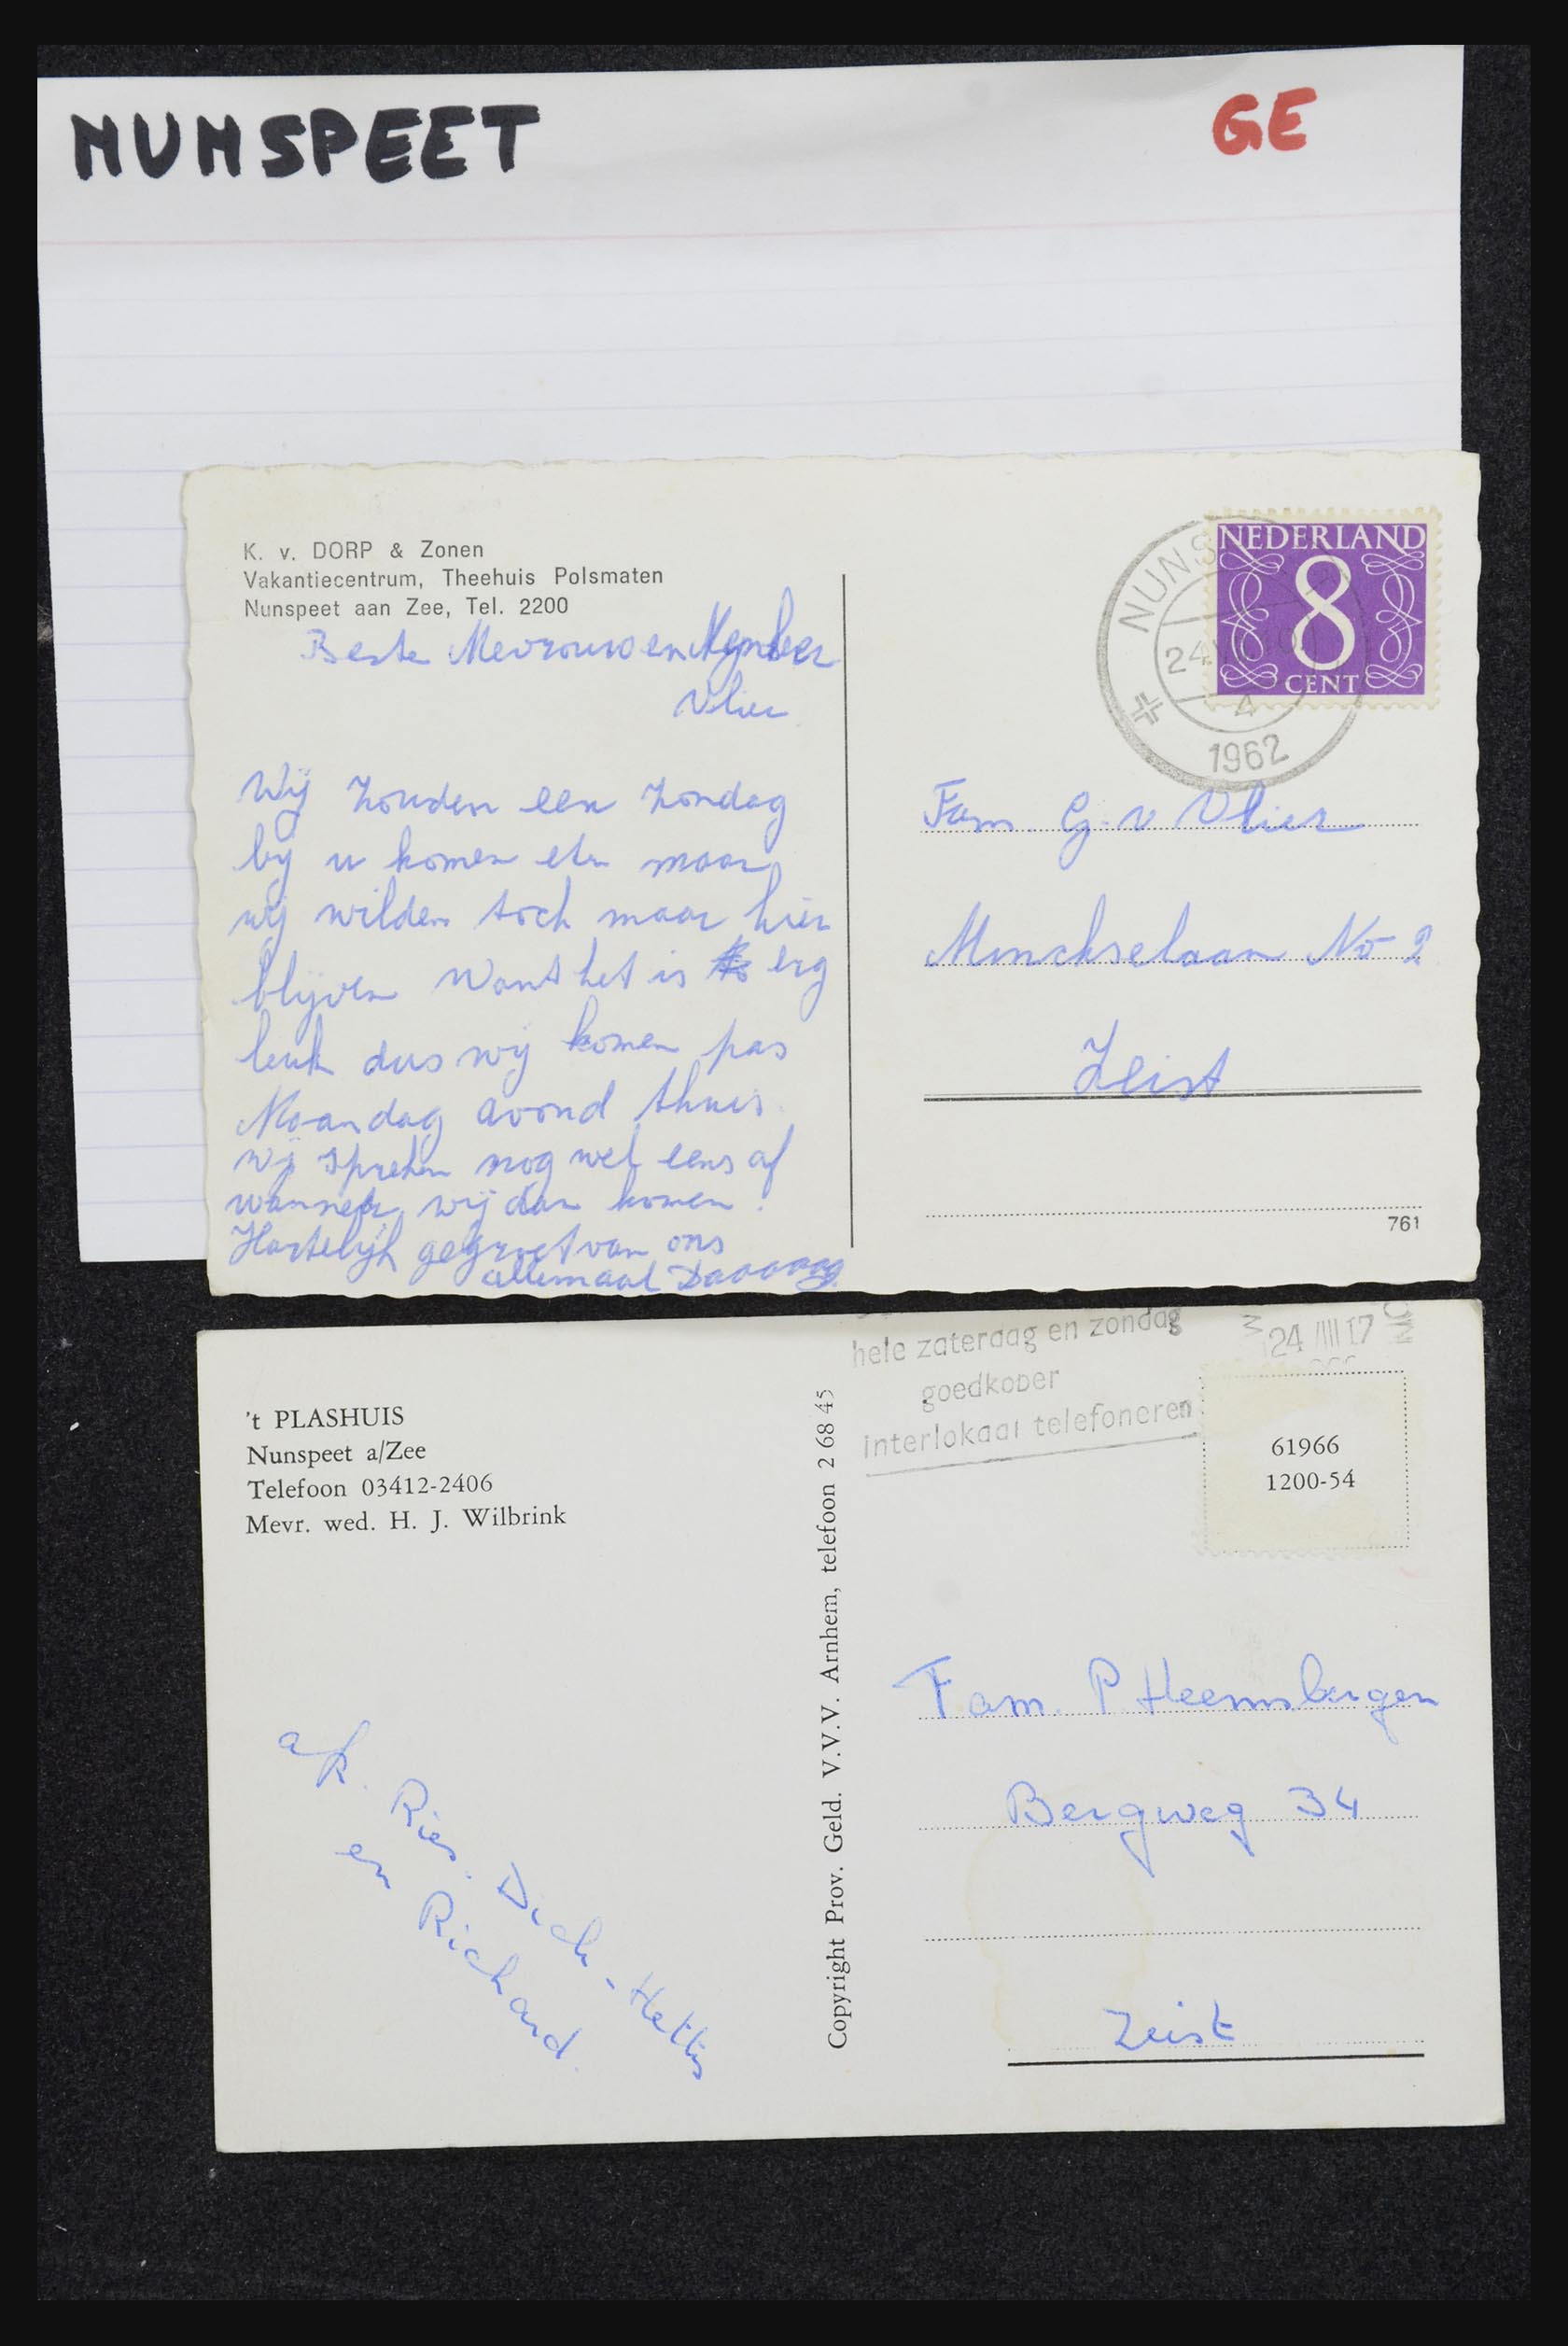 NUNSPEET
GE
K. v. DORP & Zonen
Vakantiecentrum, Theehuis Polsmaten
Nunspeet aan Zee, Tel. 2200
Beste Mevrouw en Mynheer
Vlier
Wij zouden een zondag
bij u komen eten maar
wij wilden toch maar hier
blijven Want het is erg
leuk dus wij komen pas
Maandag avond thuis.
Wij spreken nog wel eens af
wanneer wij dan komen!
Hartelijk gegroet van ons
allemaal Daaaaag.
NUNS
24
4
1962
NEDERLAND
8
CENT
Fam. G. v Vlier
No 2
Zeist
761
't PLASHUIS
Nunspeet a/Zee
Telefoon 03412-2406
Mevr. wed. H. J. Wilbrink
af. Ries. Dick - Hettis
en Richard.
Copyright Prov. Geld. V.V.V. Arnhem, telefoon 2 68 45
hele zaterdag en zondag
goedkoper
interlokaal telefoneren
24
61966
1200-54
Fam. P. Heemsbergen
Bergweg 34
Zeist